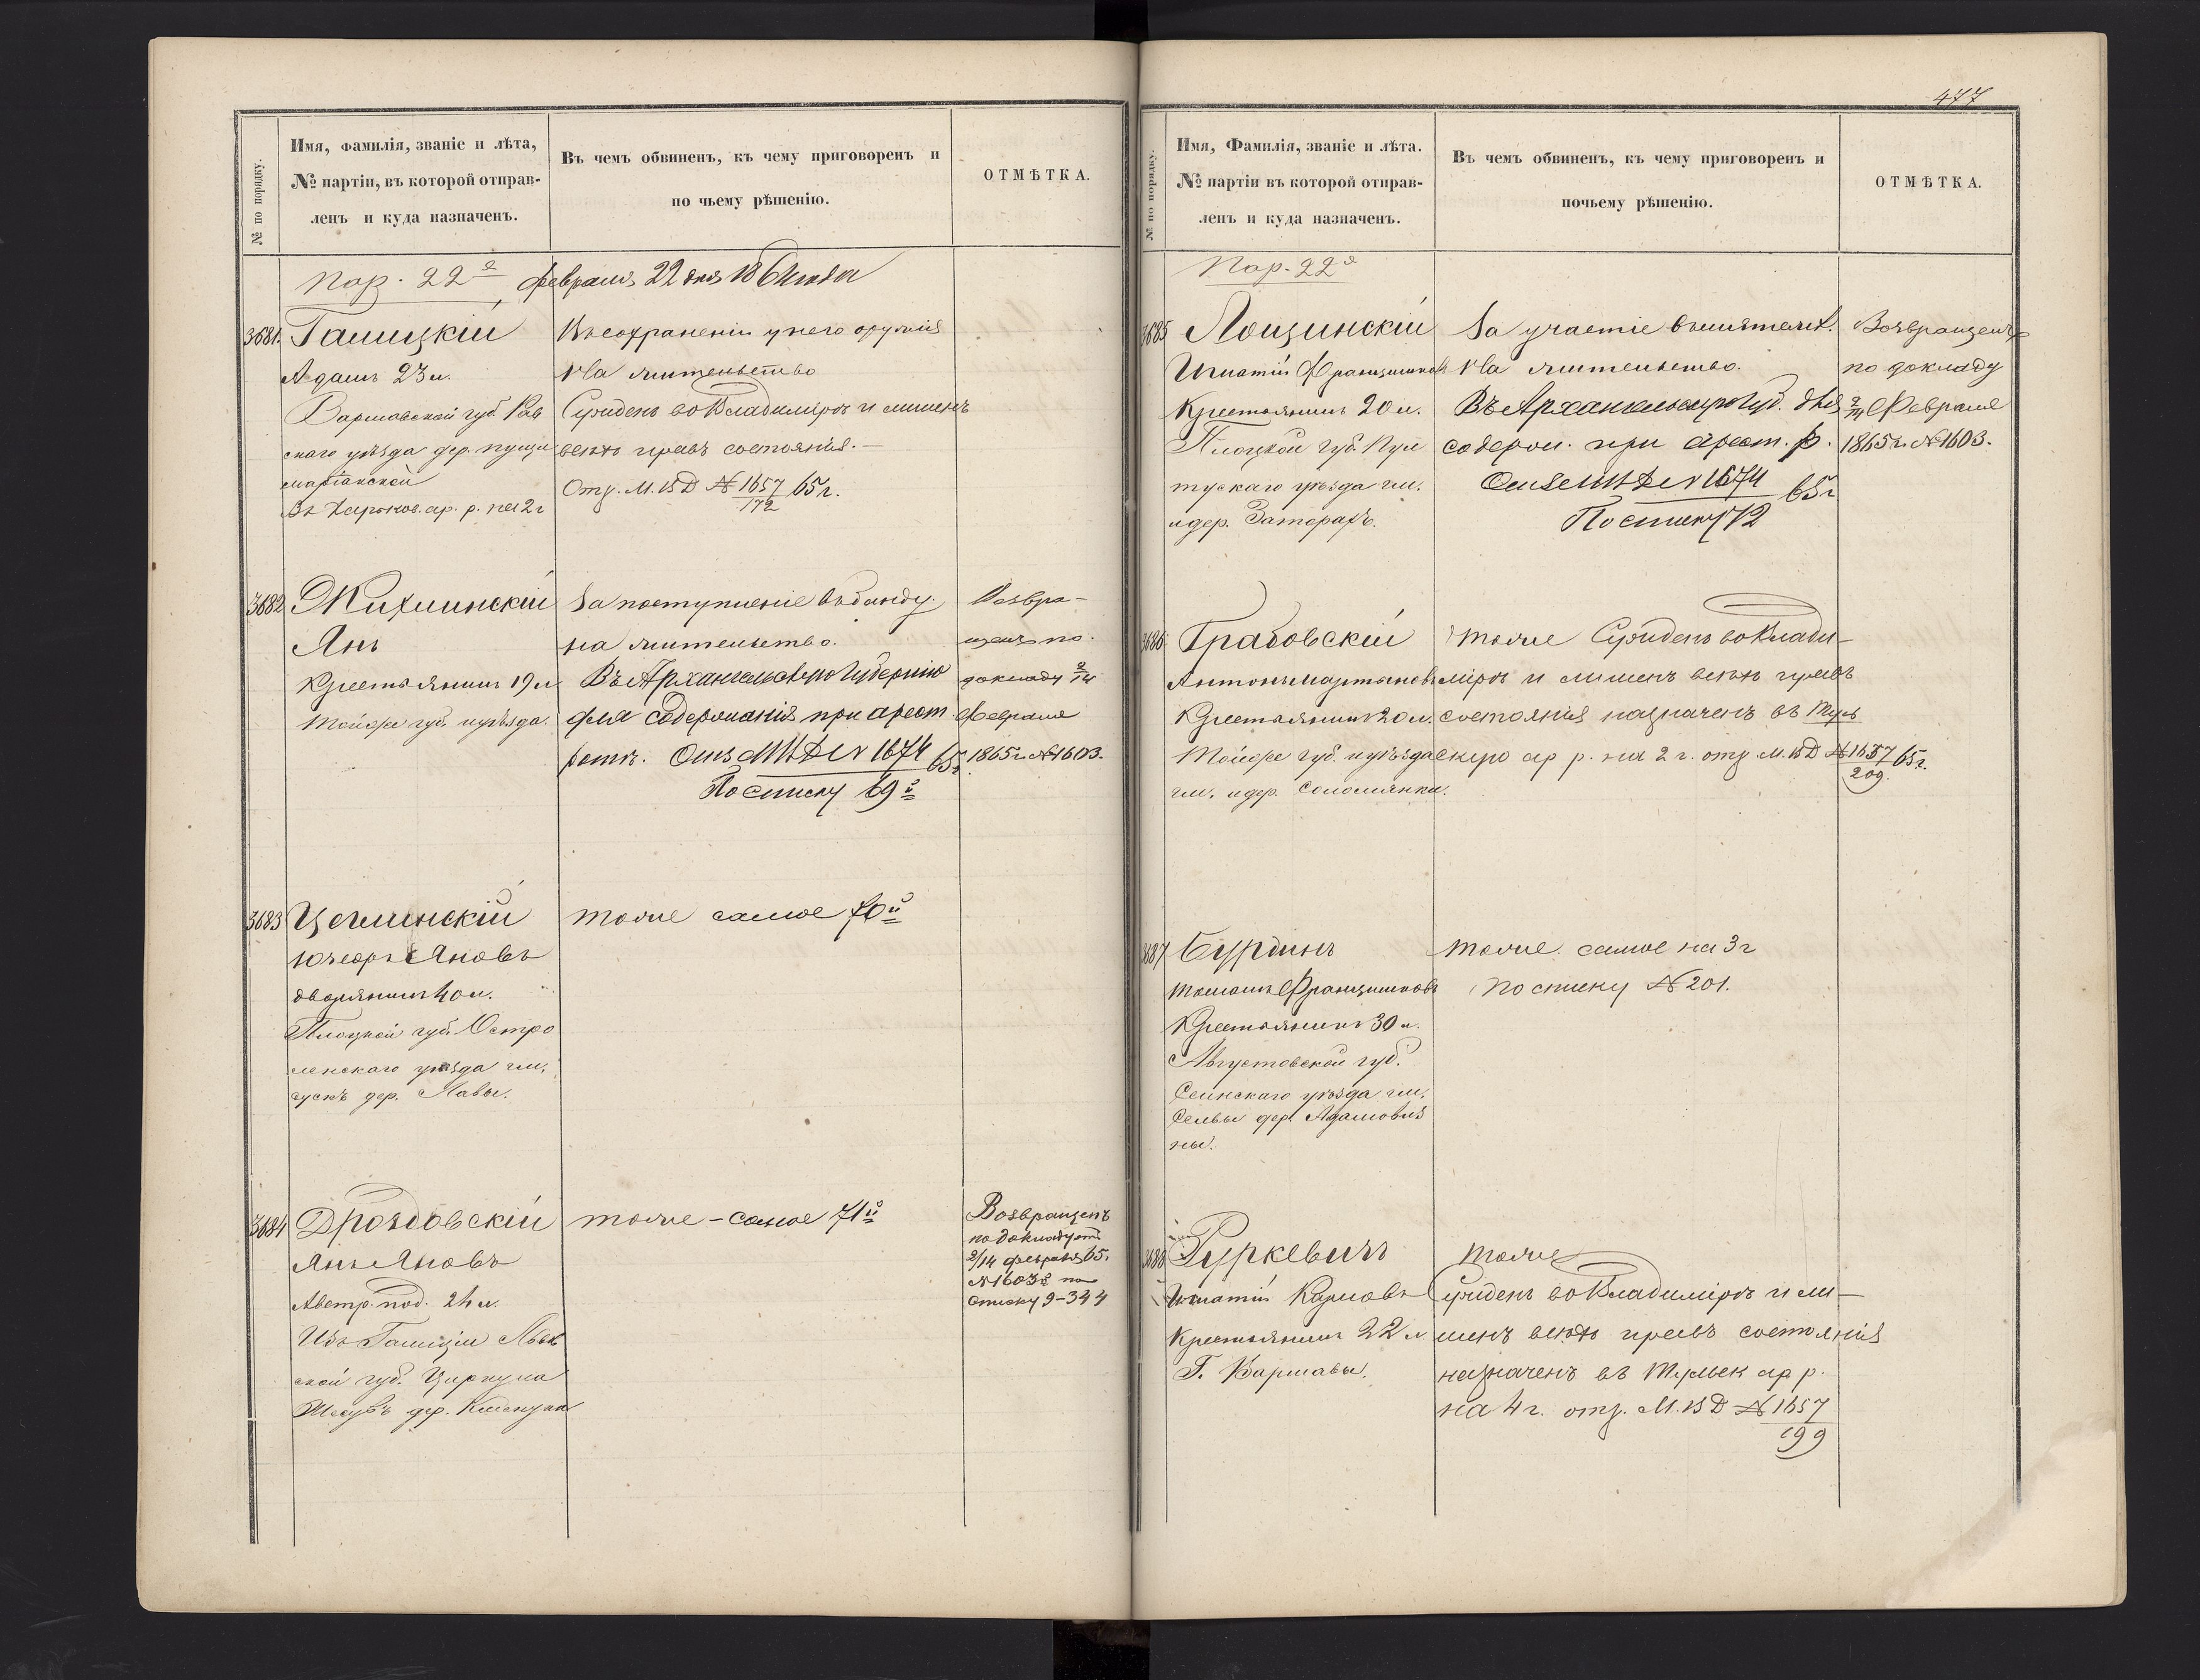 № по порядку.
Имя, фамилія, званіе и лѣта,
№ партіи, въ которой отправ-
ленъ и куда назначенъ.
Въ чемъ обвиненъ, къ чему приговоренъ и
по чьему рѣшенію.
ОТМѢТКА.
Пар. 22я Февраля 22 дня 186 года
3681. Галицкій
Адамъ 23 л.
Варшавской губ. Рав
скаго уѣзда дер. пущи
маріанской
Въ Харьков. ар. р. на 2 г
Въ сохраненіи у него оружія
На жительство
Сужденъ во Владимірѣ и лишенъ
всѣхъ правъ состоянія.—
Отз. М. В Д № 1657/172 65 г.
3682
Янъ
Крестьянинъ 19 л
Тойже губ. и уѣзда.
За поступленіе въ банду.
на жительство.
Въ Архангельскую Губернію
для содержанія при арест
ротѣ. Отз МВД № 1674 65 г
По списку 69й
Возвра-
щенъ по
докладу 2/14
Февраля
1865 г. № 1603.
3683
Яновъ
дворянинъ 40 л.
Плоцкой губ. Остро
ленскаго уѣзда гм.
дер. Лавы.
тоже самое 70й
3684 Дроздовскій
Янъ Яновъ
Австр. под. 24 л.
Изъ Галиціи Льв
ской губ. Циркула
дер.
тоже – самое 71й
Возвращенъ
по докладу отъ
2/14 февраля 65 г
№ 1603 по
списку 9–344
477
№ по порядку.
Имя, Фамилія, званіе и лѣта.
№ партіи въ которой отправ-
ленъ и куда назначенъ.
Въ чемъ обвиненъ, къ чему приговоренъ и
почьему рѣшенію.
ОТМѢТКА.
Пар. 22я
3685 Лощинскій
Игнатій Францишковъ
Крестьянинъ 20 л.
Плоцкой губ. Пул
тускаго уѣзда гм.
и дер. Заторахъ.
За участіе въ мятежѣ.
На жительство.
Въ Архангельскую Губ. для
содерж. при арест. р.
Отз МВД № 1674 65 г
По списку 72
Возвращенъ
по докладу
2/14 Февраля
1865 г. № 1603.
3686 Грабовскій
Антонъ Мартыновъ
Крестьянинъ 20 л.
Тойже губ. и уѣзда
гм. и дер. Соломянки.
тоже Сужденъ во Влади–
мірѣ и лишенъ всѣхъ правъ
состоянія назначенъ въ Туль
скую ар р. на 2 г. отз М. В Д № 1657/209. 65 г.
3687
Томашъ Францишковъ
Крестьянинъ 30 л.
Августовской губ.
Сейнскаго уѣзда гм.
дер. Адамовиз
ны.
тоже. самое на 3 г
По списку № 201.
3688 Гуркевичъ
Игнатій Карловъ
Крестьянинъ 22 л
Г. Варшавы.
тоже
Сужденъ во Владимірѣ и ли–
шенъ всѣхъ правъ состоянія
назначенъ въ Тульск ар р.
на 4 г. отз. М. В Д № 1657
199